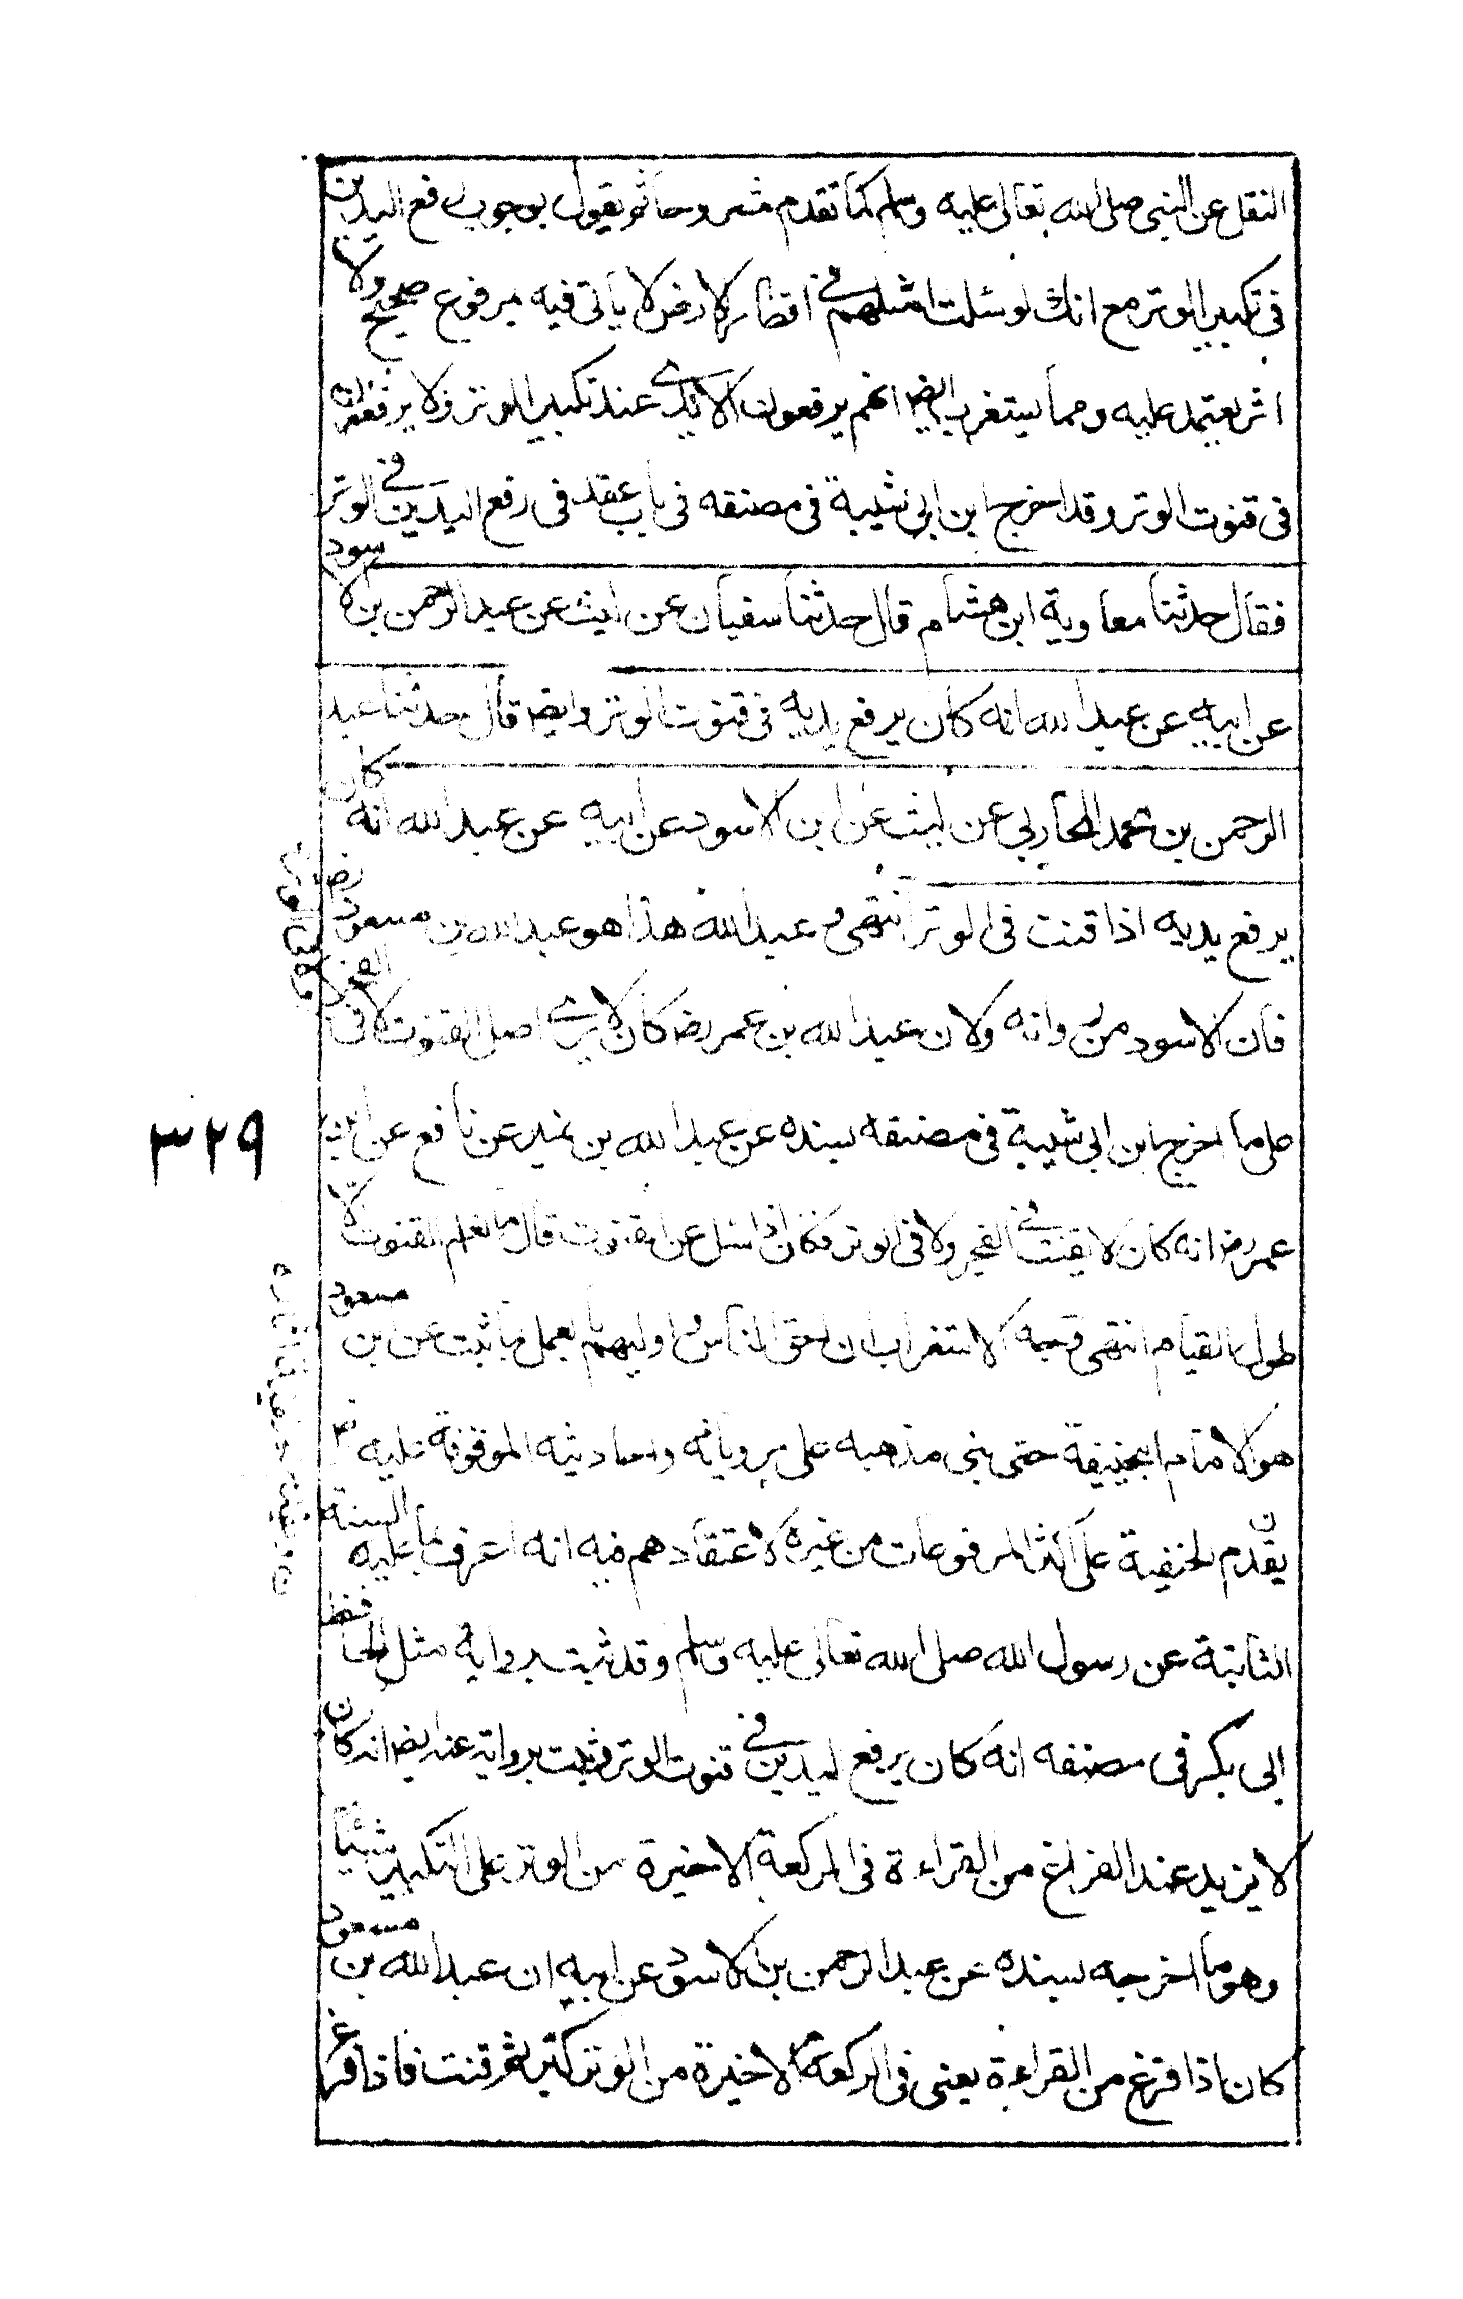 النقل عن النبي صلى الله تعالى عليه وسلم كما تقدم مشروحا ثم يقول بوجوب رفع اليدين
في تكبير الوتر مع انك لو سئلت امثلهم في اقطار الارض لا ياتي فيه بمرفوع صحيح ولا
اثر يعتمد عليه ومما يستغرب ايض انهم يرفعون الايدى عند تكبير الوتر ولا يرفعون
في قنوت الوتر وقد اخرج ابن ابي شيبة في مصنفه في باب عقد في رفع اليدين في الوتر
فقال حدثنا معاوية ابن هشام قال حدثنا سفيان عن ليث عن عبد الرحمن بن الاسود
عن ابيه عن عبد الله انه كان يرفع يديه في قنوت الوتر وايض قال حدثنا عبد
الرحمن بن محمد المحاربي عن ليث عن ابن الاسود عن ابيه عن عبد الله انه كان
يرفع يديه اذا قنت في الوتر انتهى و عبد الله هذا هو عبد الله بن مسعود رض
فان الاسود من رواته ولان عبد الله بن عمر رض كان لا يرى اصل القنوت لا في الفجر
على ما اخرج ابن ابي شيبة في مصنفه بسنده عن عبد الله بن نمير عن نافع عن ابن
عمر رض انه كان لا يقنت في الفجر ولا في الوتر فكان اذا سئل عن القنوت قال ما نعلم القنوت الا
طول القيام انتهى وجه الاستغراب ان احق الناس و اوليهم بان يعمل بما ثبت عن ابن مسعود
هو الامام ابيحنيفة حتى بنى مذهبه على مروياته واحاديثه الموقوفة عليه
يقدم الحنفية على اكثر المرفوعات من غيره لاعتقادهم فيه انه اعرف بما عليه السنة
الثابتة عن رسول الله صلى الله تعالى عليه وسلم وقد ثبت برواية مثل الحافظ
ابي بكر في مصنفه انه كان يرفع اليدين في قنوت الوتر وثبت بروايته عنه ايض انه كان
لا يزيد عند الفراغ من القراءة في الركعة الاخيرة من الوتر على التكبير شيئا
وهو ما اخرجه بسنده عن عبد الرحمن بن الاسود عن ابيه ان عبد الله بن مسعود
كان اذا فرغ من القراءة يعنى في الركعة الاخيرة من الوتر كبر ثم قنت فاذا فرغ
٣٢٩